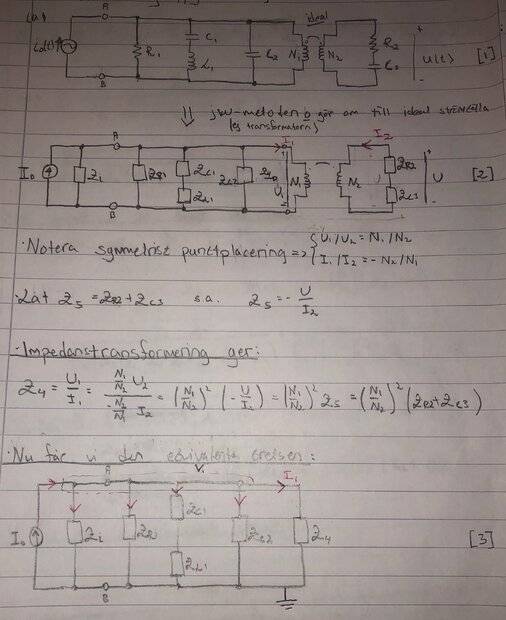 (a)
A
ideal
i₀(t)
R₁
C₁
L₁
C₂
N₁
N₂
R₂
C₃
+
U(t)
-
[1]
B
⇓ jw-metoden o gör om till ideal strömkälla
(ej transformatorn)
A
I₁
I₂
I₀
Zᵢ
Z_R1
Z_C1
Z_L1
Z_C2
Z₄
U₁
N₁
N₂
Z_R2
Z_C3
+
U
-
[2]
B
· Notera symmetrisk punktplacering => { U₁/U₂ = N₁/N₂
I₁/I₂ = -N₂/N₁
· Låt Z₅ = Z_R2 + Z_C3 s.a. Z₅ = - U/I₂
· Impedanstransformering ger:
Z₄ = U₁/I₁ = (N₁/N₂ U₂)/(-N₂/N₁ I₂) = (N₁/N₂)² (-U/I₂) = (N₁/N₂)² Z₅ = (N₁/N₂)² (Z_R2 + Z_C3)
· Nu får vi den ekvivalenta kretsen:
A
V₁
I₁
I₀
Zᵢ
Z_C1
Z_L1
Z_C2
Z₄
[3]
B